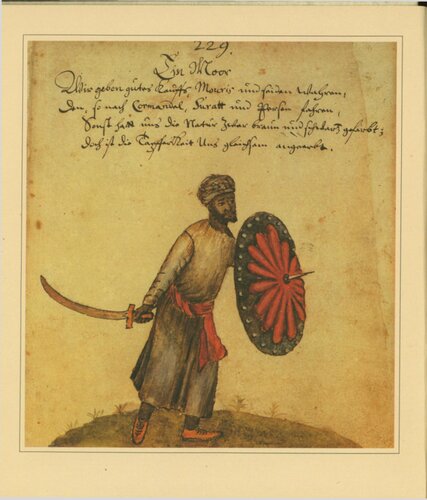 229.
Ein Moor
Wir geben gutes Kauffs Mouris und seiden Wahren,
Den, so nach Cormandel, Suratt und Persen fahren,
Sonst hatt uns die Natur Zwar braun und schwartz gefarbt;
Doch ist die Tapferkeit Uns gleichsam angeerbt.